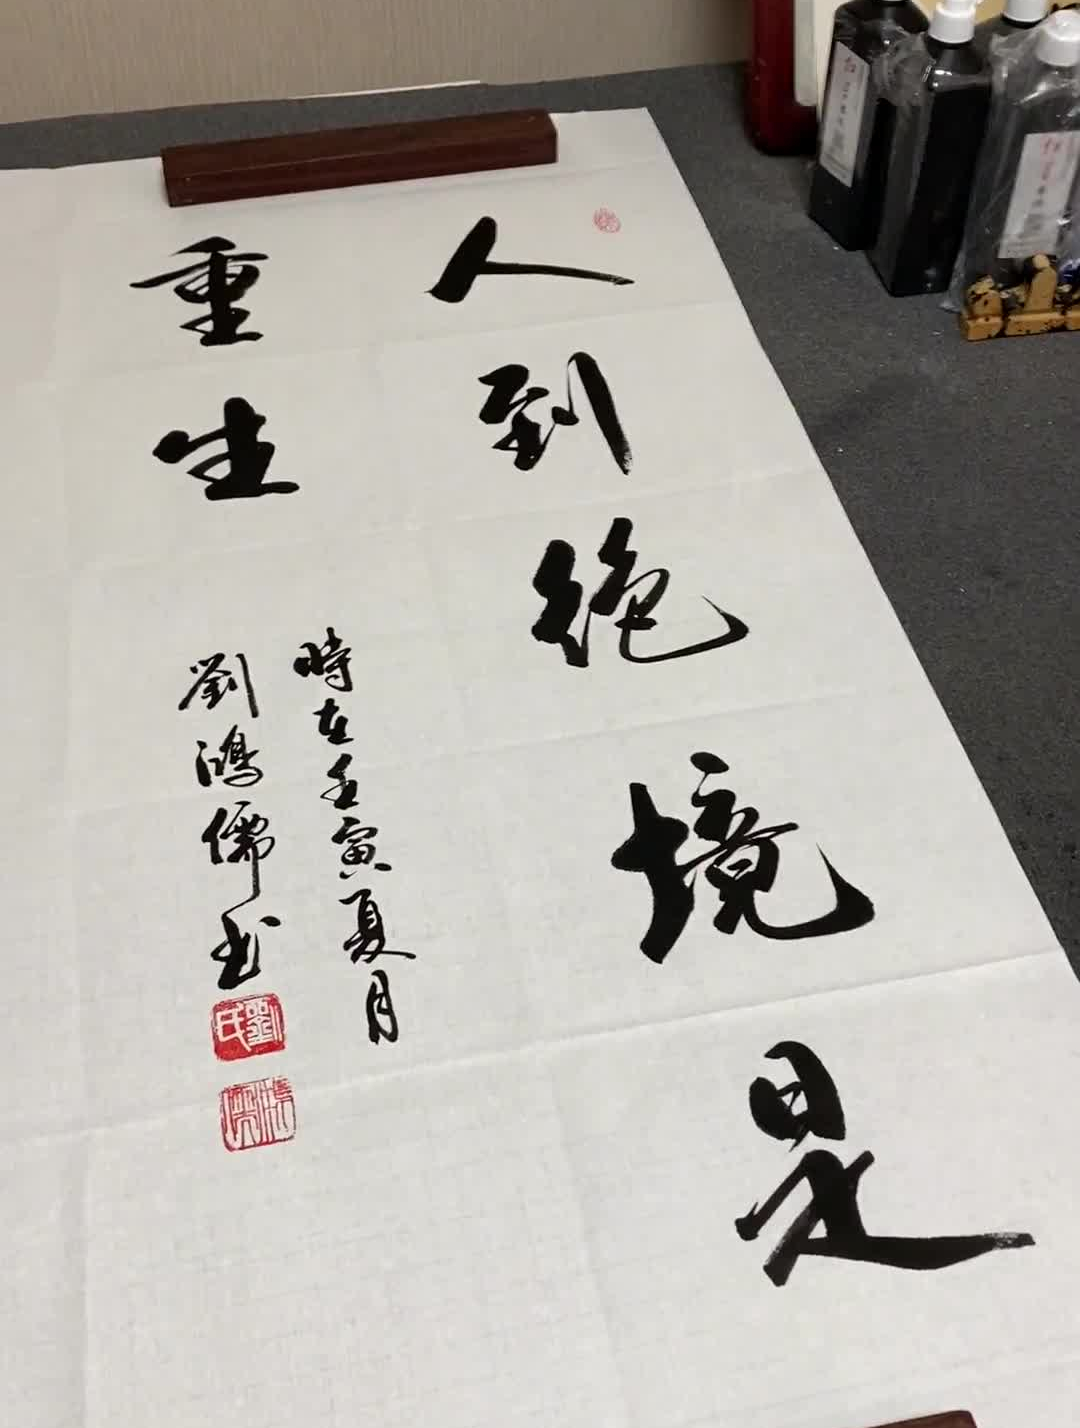 人到绝境是
重生
時在壬寅夏月
劉鴻儒书
劉氏
鴻儒